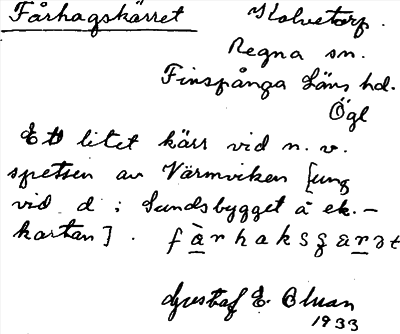 Fårhagskärret Kolvetorp.
Regna sn.
Finspånga Läns hd.
Ögl
Ett litet kärr vid n. v.
spetsen av Värmviken [ung
vid d i Sundsbygget å ek.-
kartan].
Gustaf E.
1933